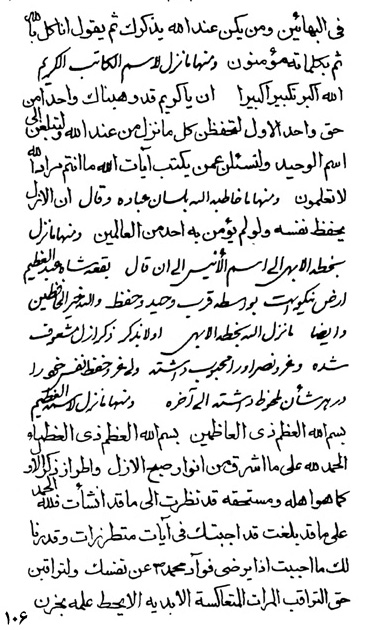 في البهائين ومن يكن عند الله يذكرك ثم يقول انا كل بالله
ثم بكلماته مؤمنون ومنها مانزل لاسم الكاتب الكريم
الله اكبر تكبيرا كبيرا ان يا كريم قد وهبناك واحدا من
حق واحد الاول لتحفظن كل ما نزل من عند الله ولتبلغن الى
اسم الوحيد ولتسئلن عمن يكتب آيات الله ما انتم مراد الله
لا تعلمون ومنها ما خاطبه الله بلسان عباده وقال ان الازل
يحفظ نفسه ولو لم يؤمن به احد من العالمين ومنها مانزل
بخطه الابهى الى اسم الأنيس الى ان قال بقعه شاه عبد العظيم
ارض نيكوئيست بواسطه قرب وحيد وحفظ والله خير الحافظين
وايضا مانزل الله بخطه الابهى اولا بذكر ذكر ازل مشعوف
شده و غرور نصر او را محبوب داشته
در هر شأن ملحوظ داشته الى آخره ومنها مانزل
بسم الله العظم ذي العاظمين بسم الله العظم ذي العظماء
الحمد لله على ما اشرق من انوار صبح الازل واطواز ذكر الاول
كما هو اهله ومستحقه قد نظرت الى ما قد انشأت فلله الحمد
على ما قد بلغت قد اجبتك في آيات متطرزات وقدرنا
لك ما احببت اذا يرضى فوآد محمد عن نفسك ولتراقبن
حق التراقب المرات المتعاكسة الابديه الا يحط علمه بحزن
۱۰۶